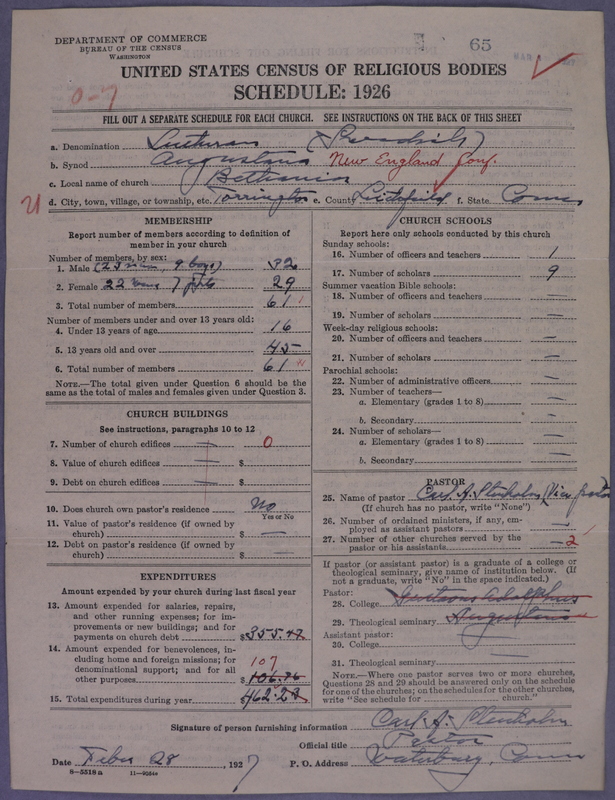 DEPARTMENT OF COMMERCE
BUREAU OF THE CENSUS
WASHINGTON
65
UNITED STATES CENSUS OF RELIGIOUS BODIES
SCHEDULE: 1926
0-7
FILL OUT A SEPARATE SCHEDULE FOR EACH CHURCH. SEE INSTRUCTIONS ON THE BACK OF THIS SHEET
a. Denomination Lutheran (Swedish)
b. Synod Augustana New England Conf.
c. Local name of church Bethania
d. City, town, village, or township, etc. Torrington e. County Litchfield f. State Conn
MEMBERSHIP
Report number of members according to definition of
member in your church
Number of members, by sex:
1. Male (23 men, 9 boys) 32
2. Female 22 7 girls 29
3. Total number of members 61
Number of members under and over 13 years old:
4. Under 13 years of age 16
5. 13 years old and over 45
6. Total number of members 61
NOTE.—The total given under Question 6 should be the
same as the total of males and females given under Question 3.
CHURCH BUILDINGS
See instructions, paragraphs 10 to 12
7. Number of church edifices — 0
8. Value of church edifices — $
9. Debt on church edifices — $
10. Does church own pastor's residence No
Yes or No
11. Value of pastor's residence (if owned by
church) $ —
12. Debt on pastor's residence (if owned by
church) $ —
EXPENDITURES
Amount expended by your church during last fiscal year
13. Amount expended for salaries, repairs,
and other running expenses; for im-
provements or new buildings; and for
payments on church debt $355.47
14. Amount expended for benevolences, in-
cluding home and foreign missions; for
denominational support; and for all
107
other purposes $106.76
15. Total expenditures during year $462.23
CHURCH SCHOOLS
Report here only schools conducted by this church
Sunday schools:
16. Number of officers and teachers 1
17. Number of scholars 9
Summer vacation Bible schools:
18. Number of officers and teachers —
19. Number of scholars —
Week-day religious schools:
20. Number of officers and teachers —
21. Number of scholars —
Parochial schools:
22. Number of administrative officers —
23. Number of teachers—
a. Elementary (grades 1 to 8) —
b. Secondary —
24. Number of scholars—
a. Elementary (grades 1 to 8) —
b. Secondary —
PASTOR
25. Name of pastor Carl A. (Vice pastor
(If church has no pastor, write "None")
26. Number of ordained ministers, if any, em-
ployed as assistant pastors —
27. Number of other churches served by the
pastor or his assistants — 2
If pastor (or assistant pastor) is a graduate of a college or
theological seminary, give name of institution below. (If
not a graduate, write "No" in the space indicated.)
Pastor:
28. College Gustavus Adolphus
29. Theological seminary Augustana
Assistant pastor:
30. College
31. Theological seminary
NOTE.—Where one pastor serves two or more churches,
Questions 28 and 29 should be answered only on the schedule
for one of the churches; on the schedules for the other churches,
write "See schedule for church."
Signature of person furnishing information Carl A.
Official title Pastor
Date Feb. 28, 1927 P. O. Address Waterbury, Conn
8—5518 a